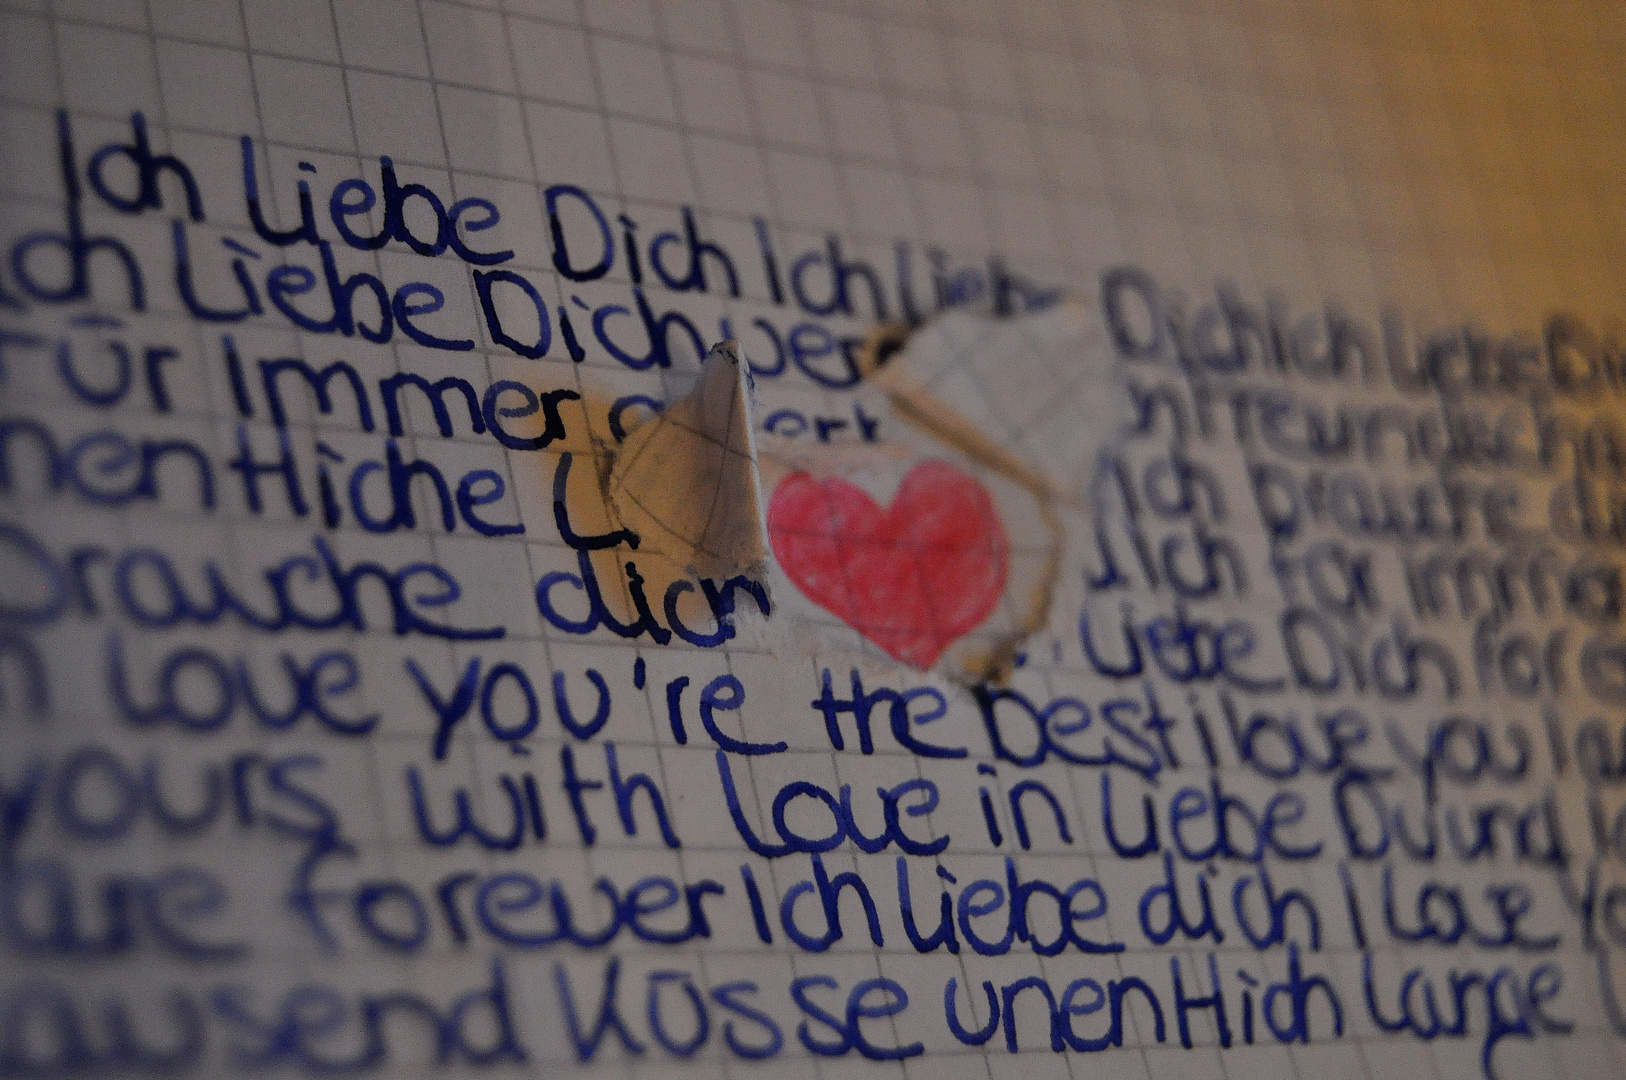 Ich Liebe Dich Ich Liebe Dich Ich Liebe Dich
ch Liebe Dich ver n freundscha
Für Immer erk Ich brauche di
nentliche L Ich für imma
Brauche dich Liebe Dich for e
n Love you're the best i love you
yours with Love in Liebe Du und
are forever Ich Liebe dich I Love Yo
ausend Küsse unentlich Lange